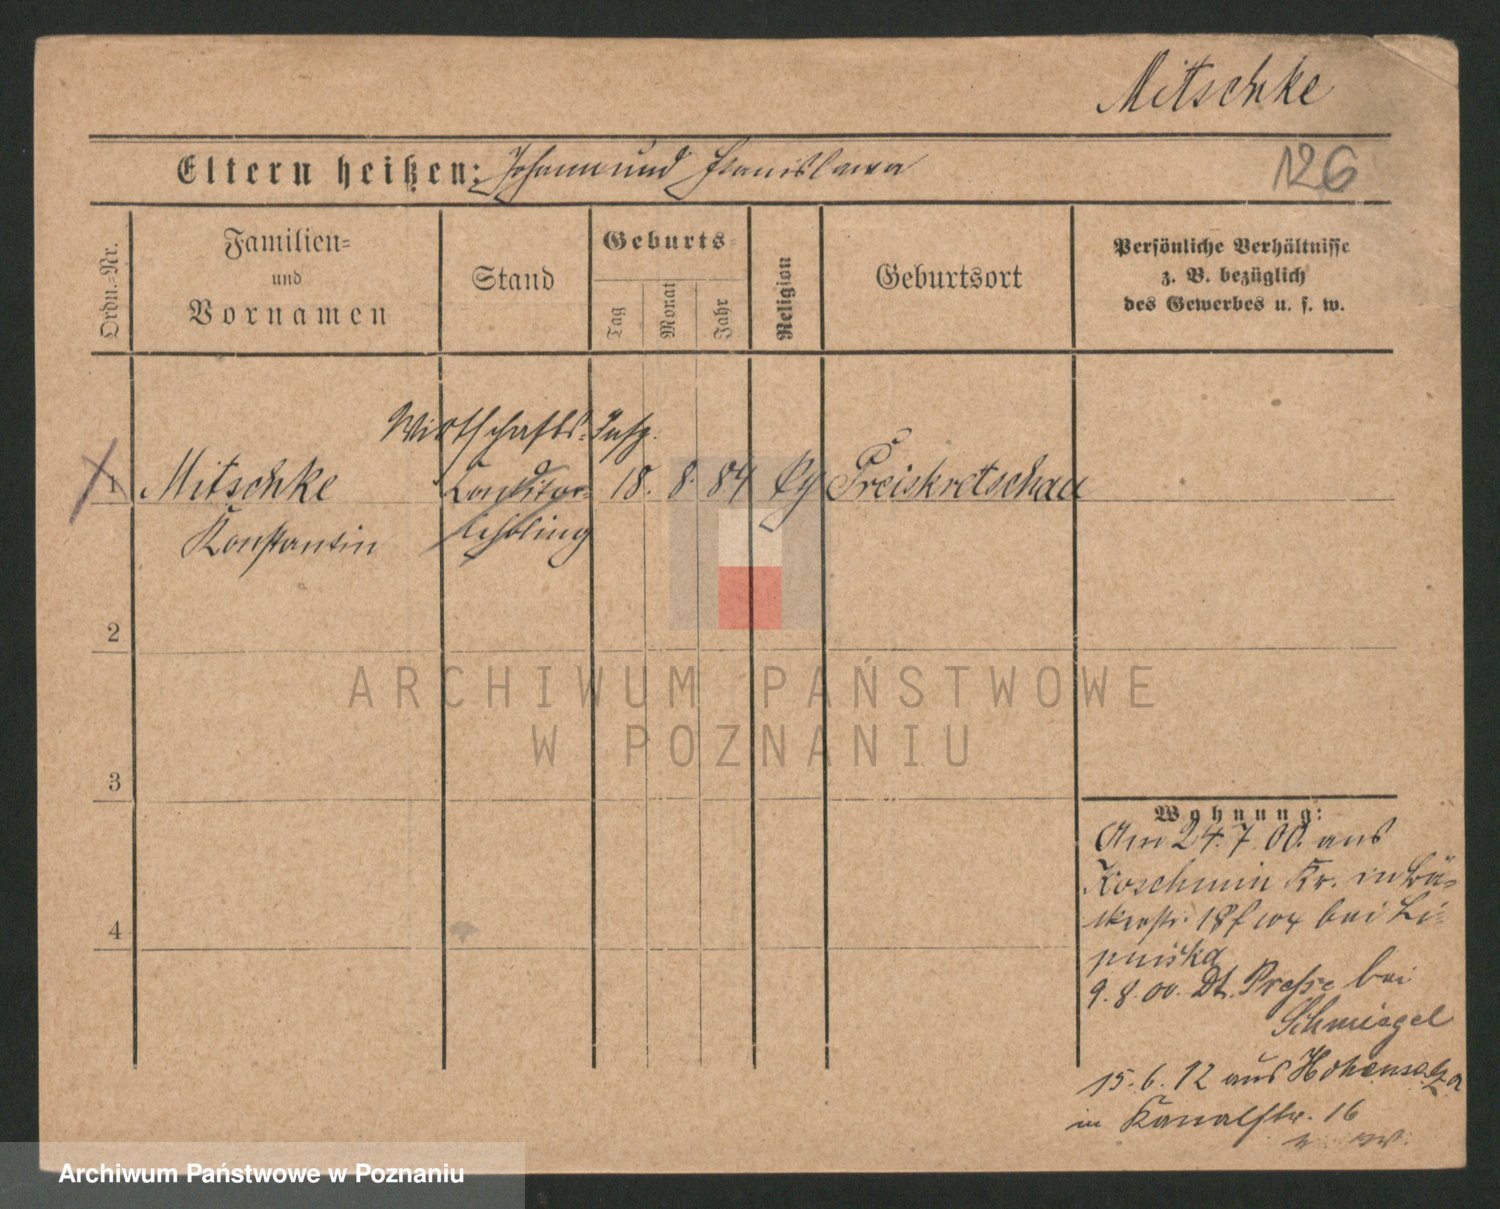 Mitschke
Eltern heißen: Johann und Stanislawa
126
Ordn.-Nr.
Familien-
und
Vornamen
Stand
Geburts-
Tag
Monat
Jahr
Religion
Geburtsort
Persönliche Verhältnisse
z. B. bezüglich
des Gewerbes u. s. w.
Wirtschafts-Insp.
1 Mitschke Conditor- 18. 8. 84 Preiskretschau
Konstantin Lehrling
2
3
4
ARCHIWUM PAŃSTWOWE
W POZNANIU
Wohnung:
Am 24.7.00. aus
Koschmin Kr. in
bei Li-
pniska
9.8.00. Dt. Presse bei
Schmiegel
15.6.12 aus Hohensalza
in Kanalstr. 16
Archiwum Państwowe w Poznaniu